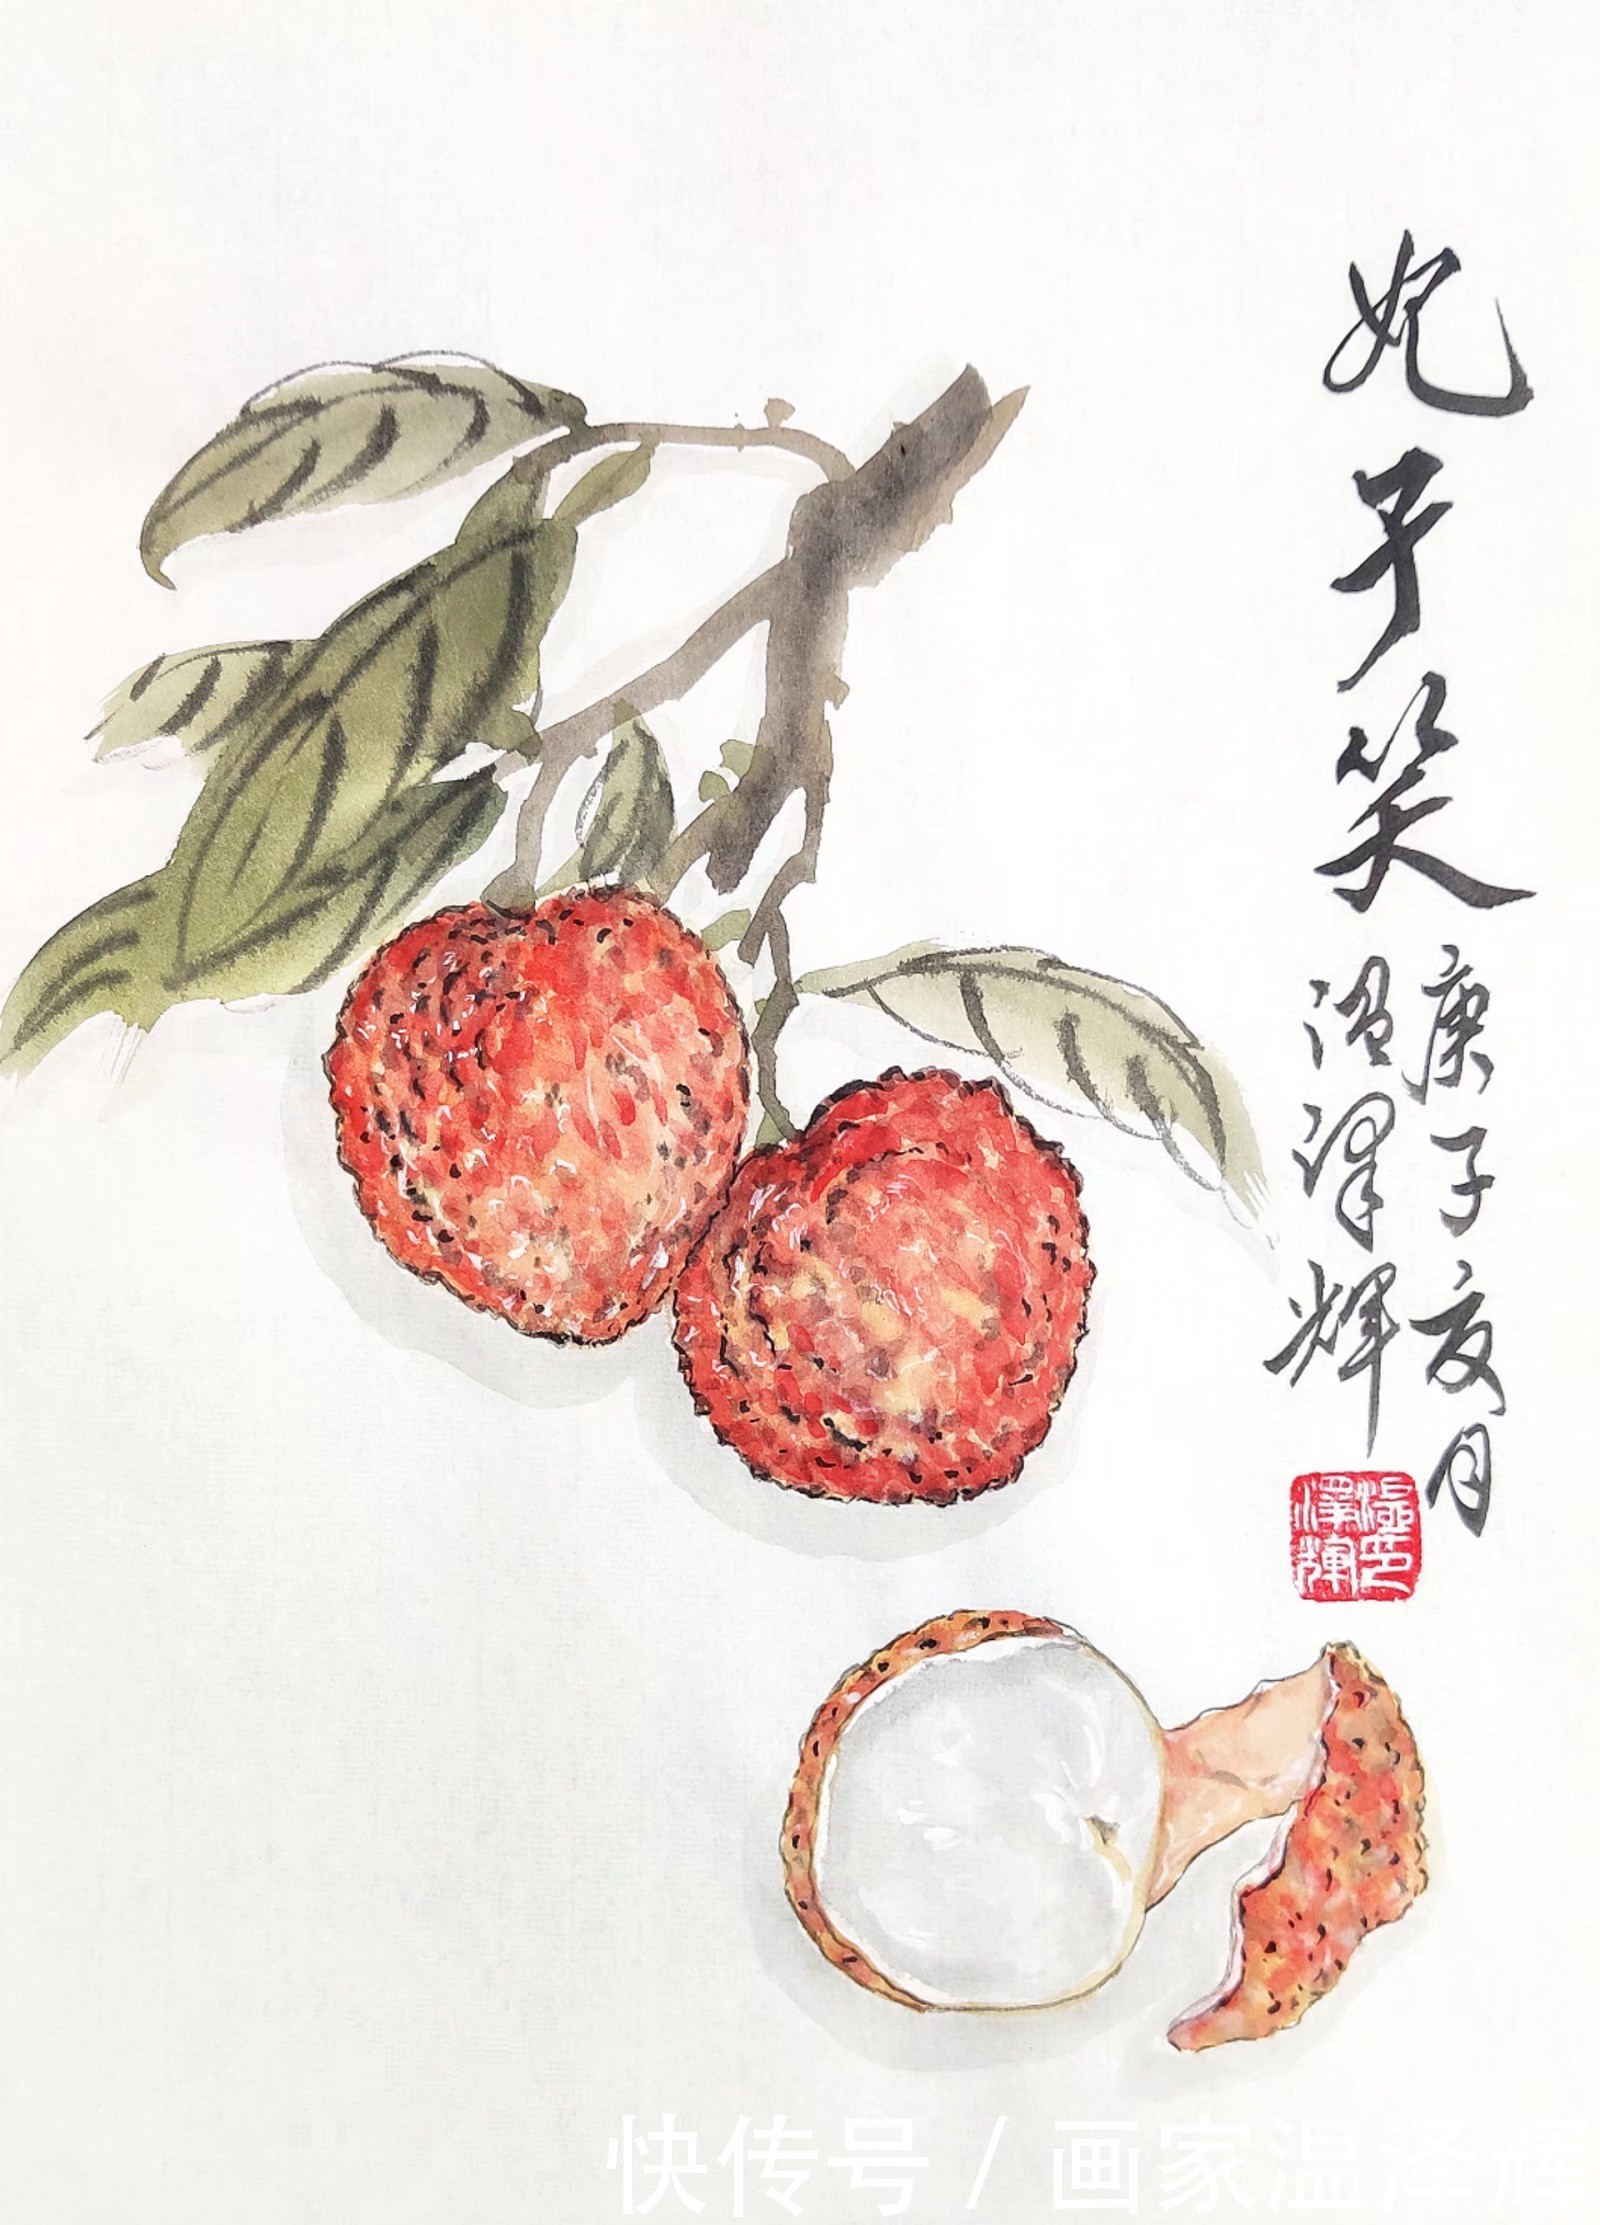 妃子笑
庚子亥月
温泽辉
温印
澤輝
快传号／画家温泽辉